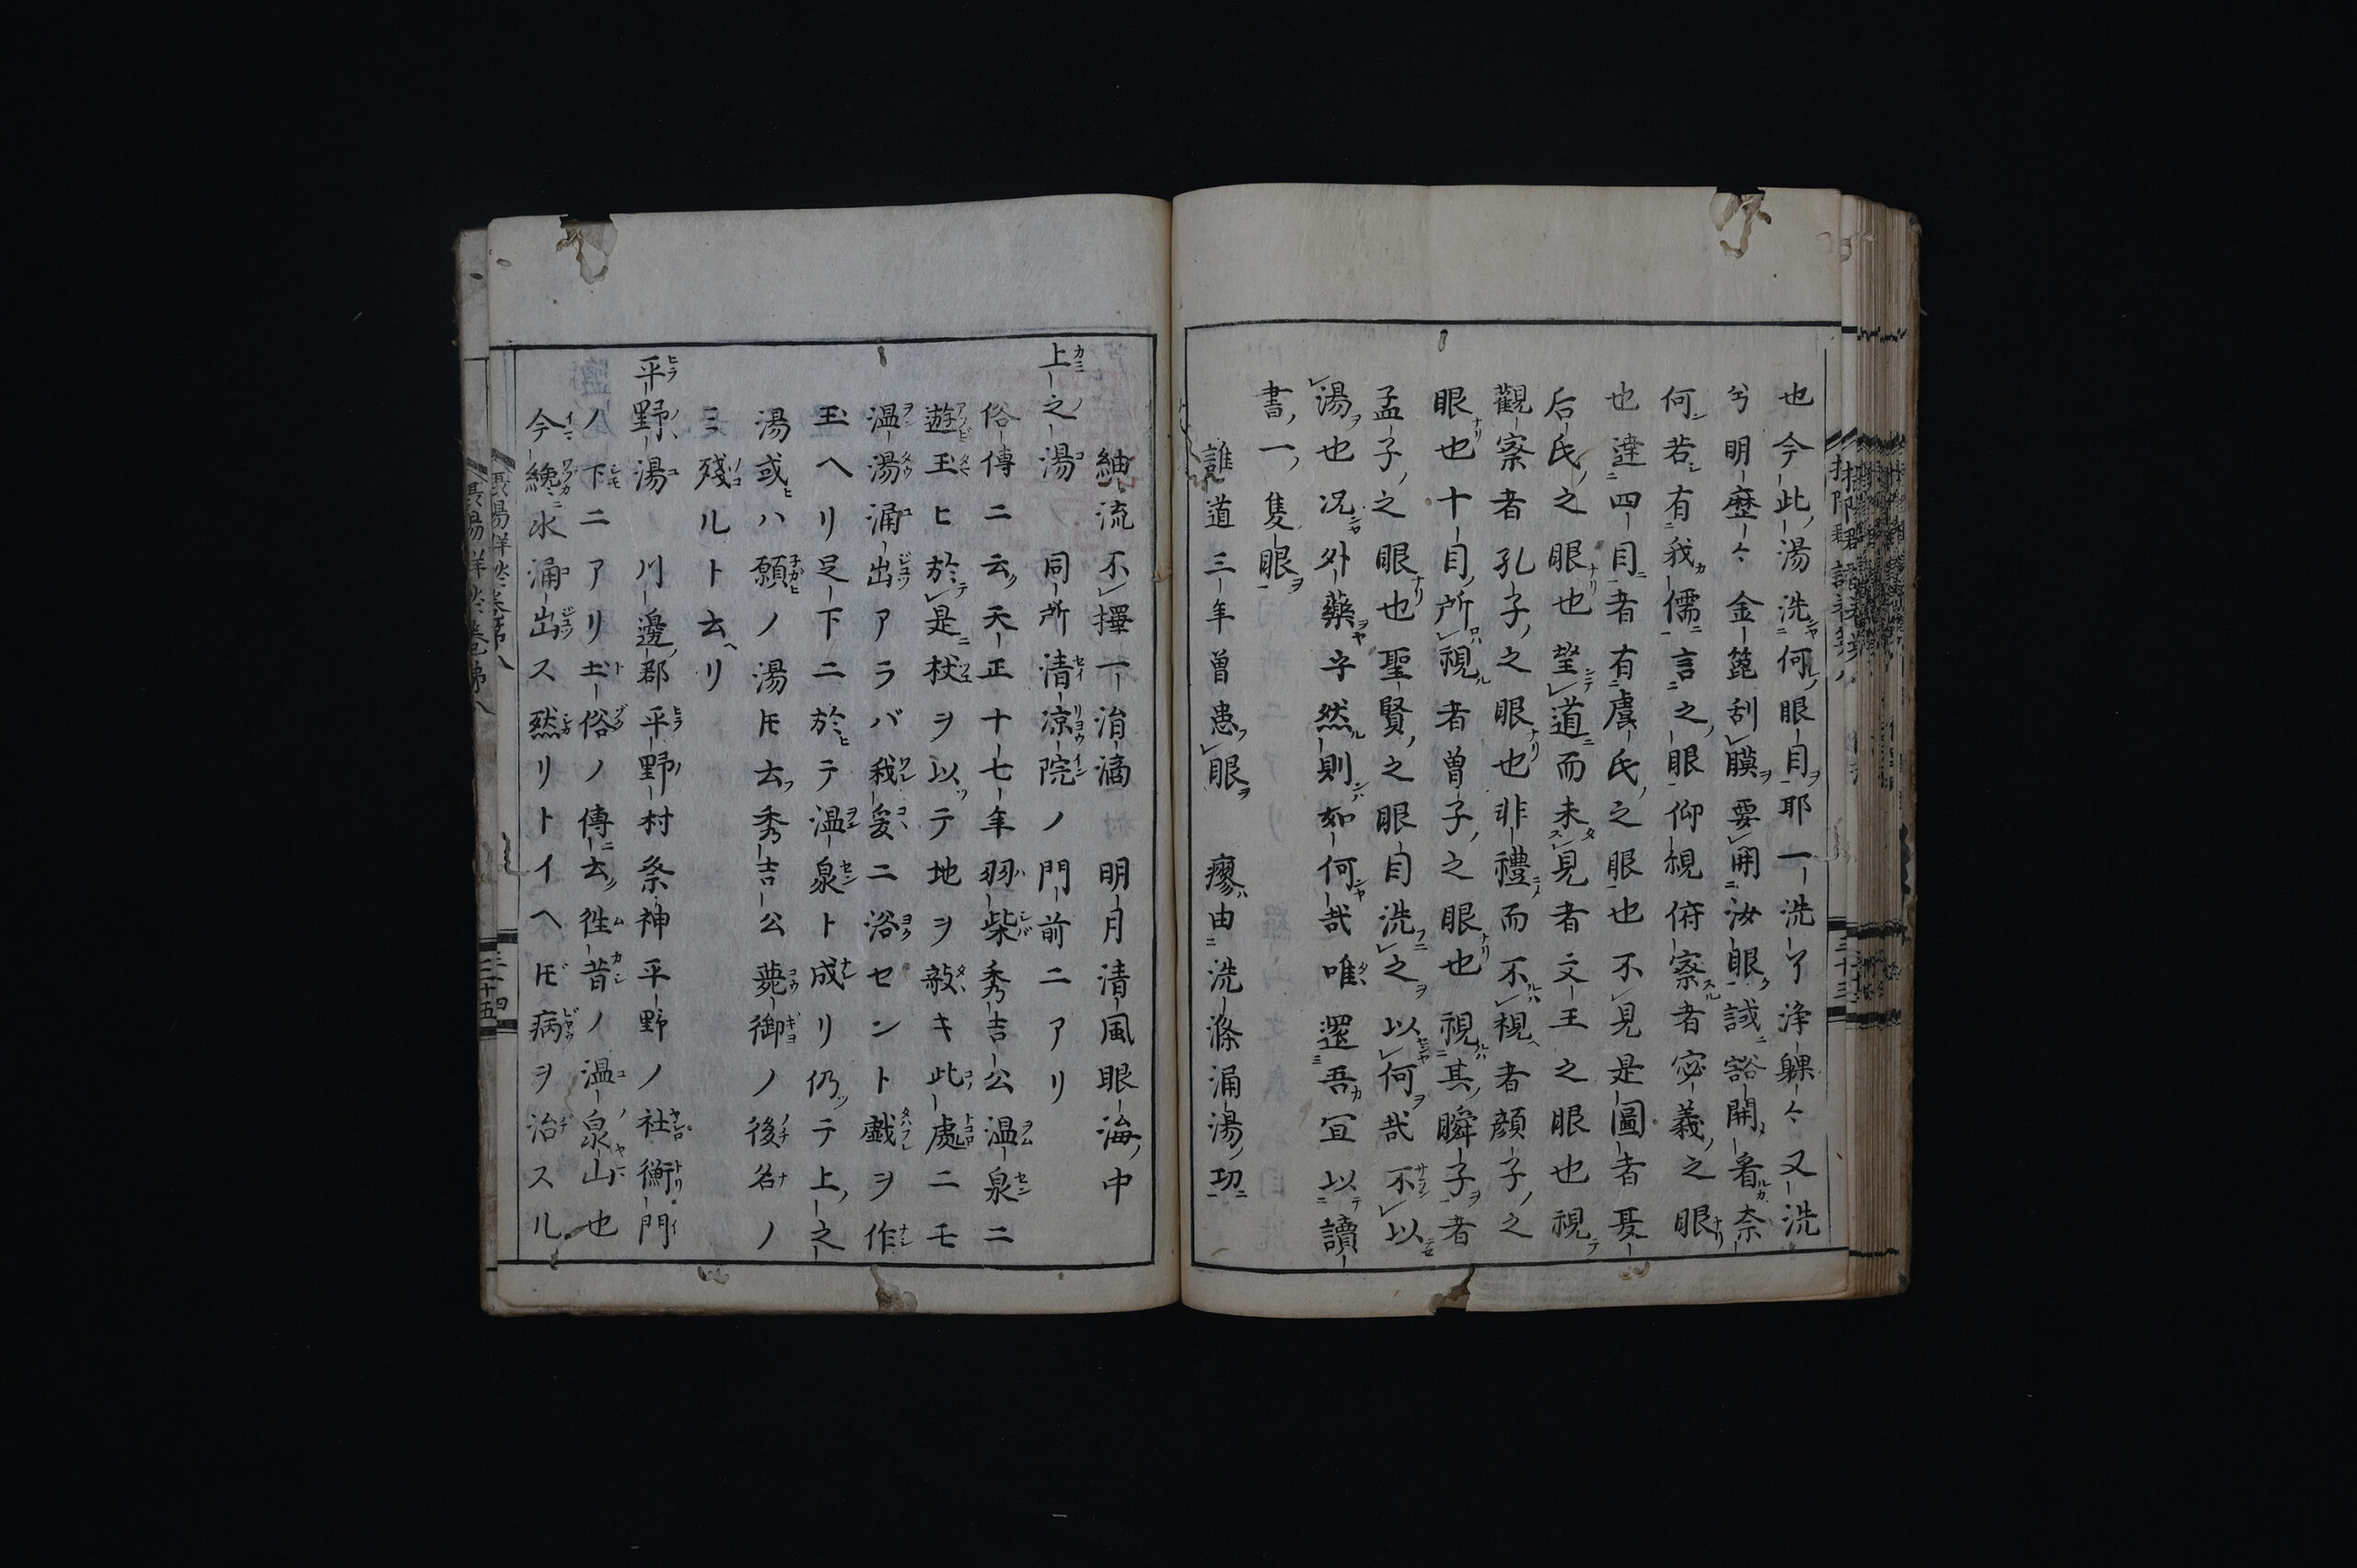 也今此湯洗何眼目耶一洗了淨躶々又洗
兮明歴々金篦刮膜要開汝眼誠豁開看奈
何若有我儒言之眼仰視俯察者宓義之眼
也達四目者有虞氏之眼也不見是圖者夏
后氏之眼也望道而未見者文王之眼也視
觀察者孔子之眼也非禮而不視者顔子之
眼也十目所視者曽子之眼也視其瞬子者
孟子之眼也聖賢之眼自洗之以何哉不以
湯也况外藥乎然則如何哉唯還吾宜以讀
書一隻眼
誰道三年曽患眼　瘳由洗滌涌湯功
紬流不擇一涓滴　明月清風眼海中
上之湯　同所清凉院ノ門前ニアリ
俗傳ニ云天正十七年羽柴秀吉公温泉ニ
遊玉ヒ於是杖ヲ以テ地ヲ敲キ此處ニモ
温湯涌出アラバ我爰ニ浴セント戯ヲ作
玉ヘリ足下ニ於テ温泉ト成リ仍テ上之
湯或ハ願ノ湯𪜈云秀吉公薨御ノ後名ノ
ミ殘ルト云ヘリ
平野湯　川邊郡平野村祭神平野ノ社衡門
ノ下ニアリ土俗ノ傳ニ云徃昔ノ温泉山也
今纔ニ水涌出ス然リトイヘ𪜈病ヲ治スル